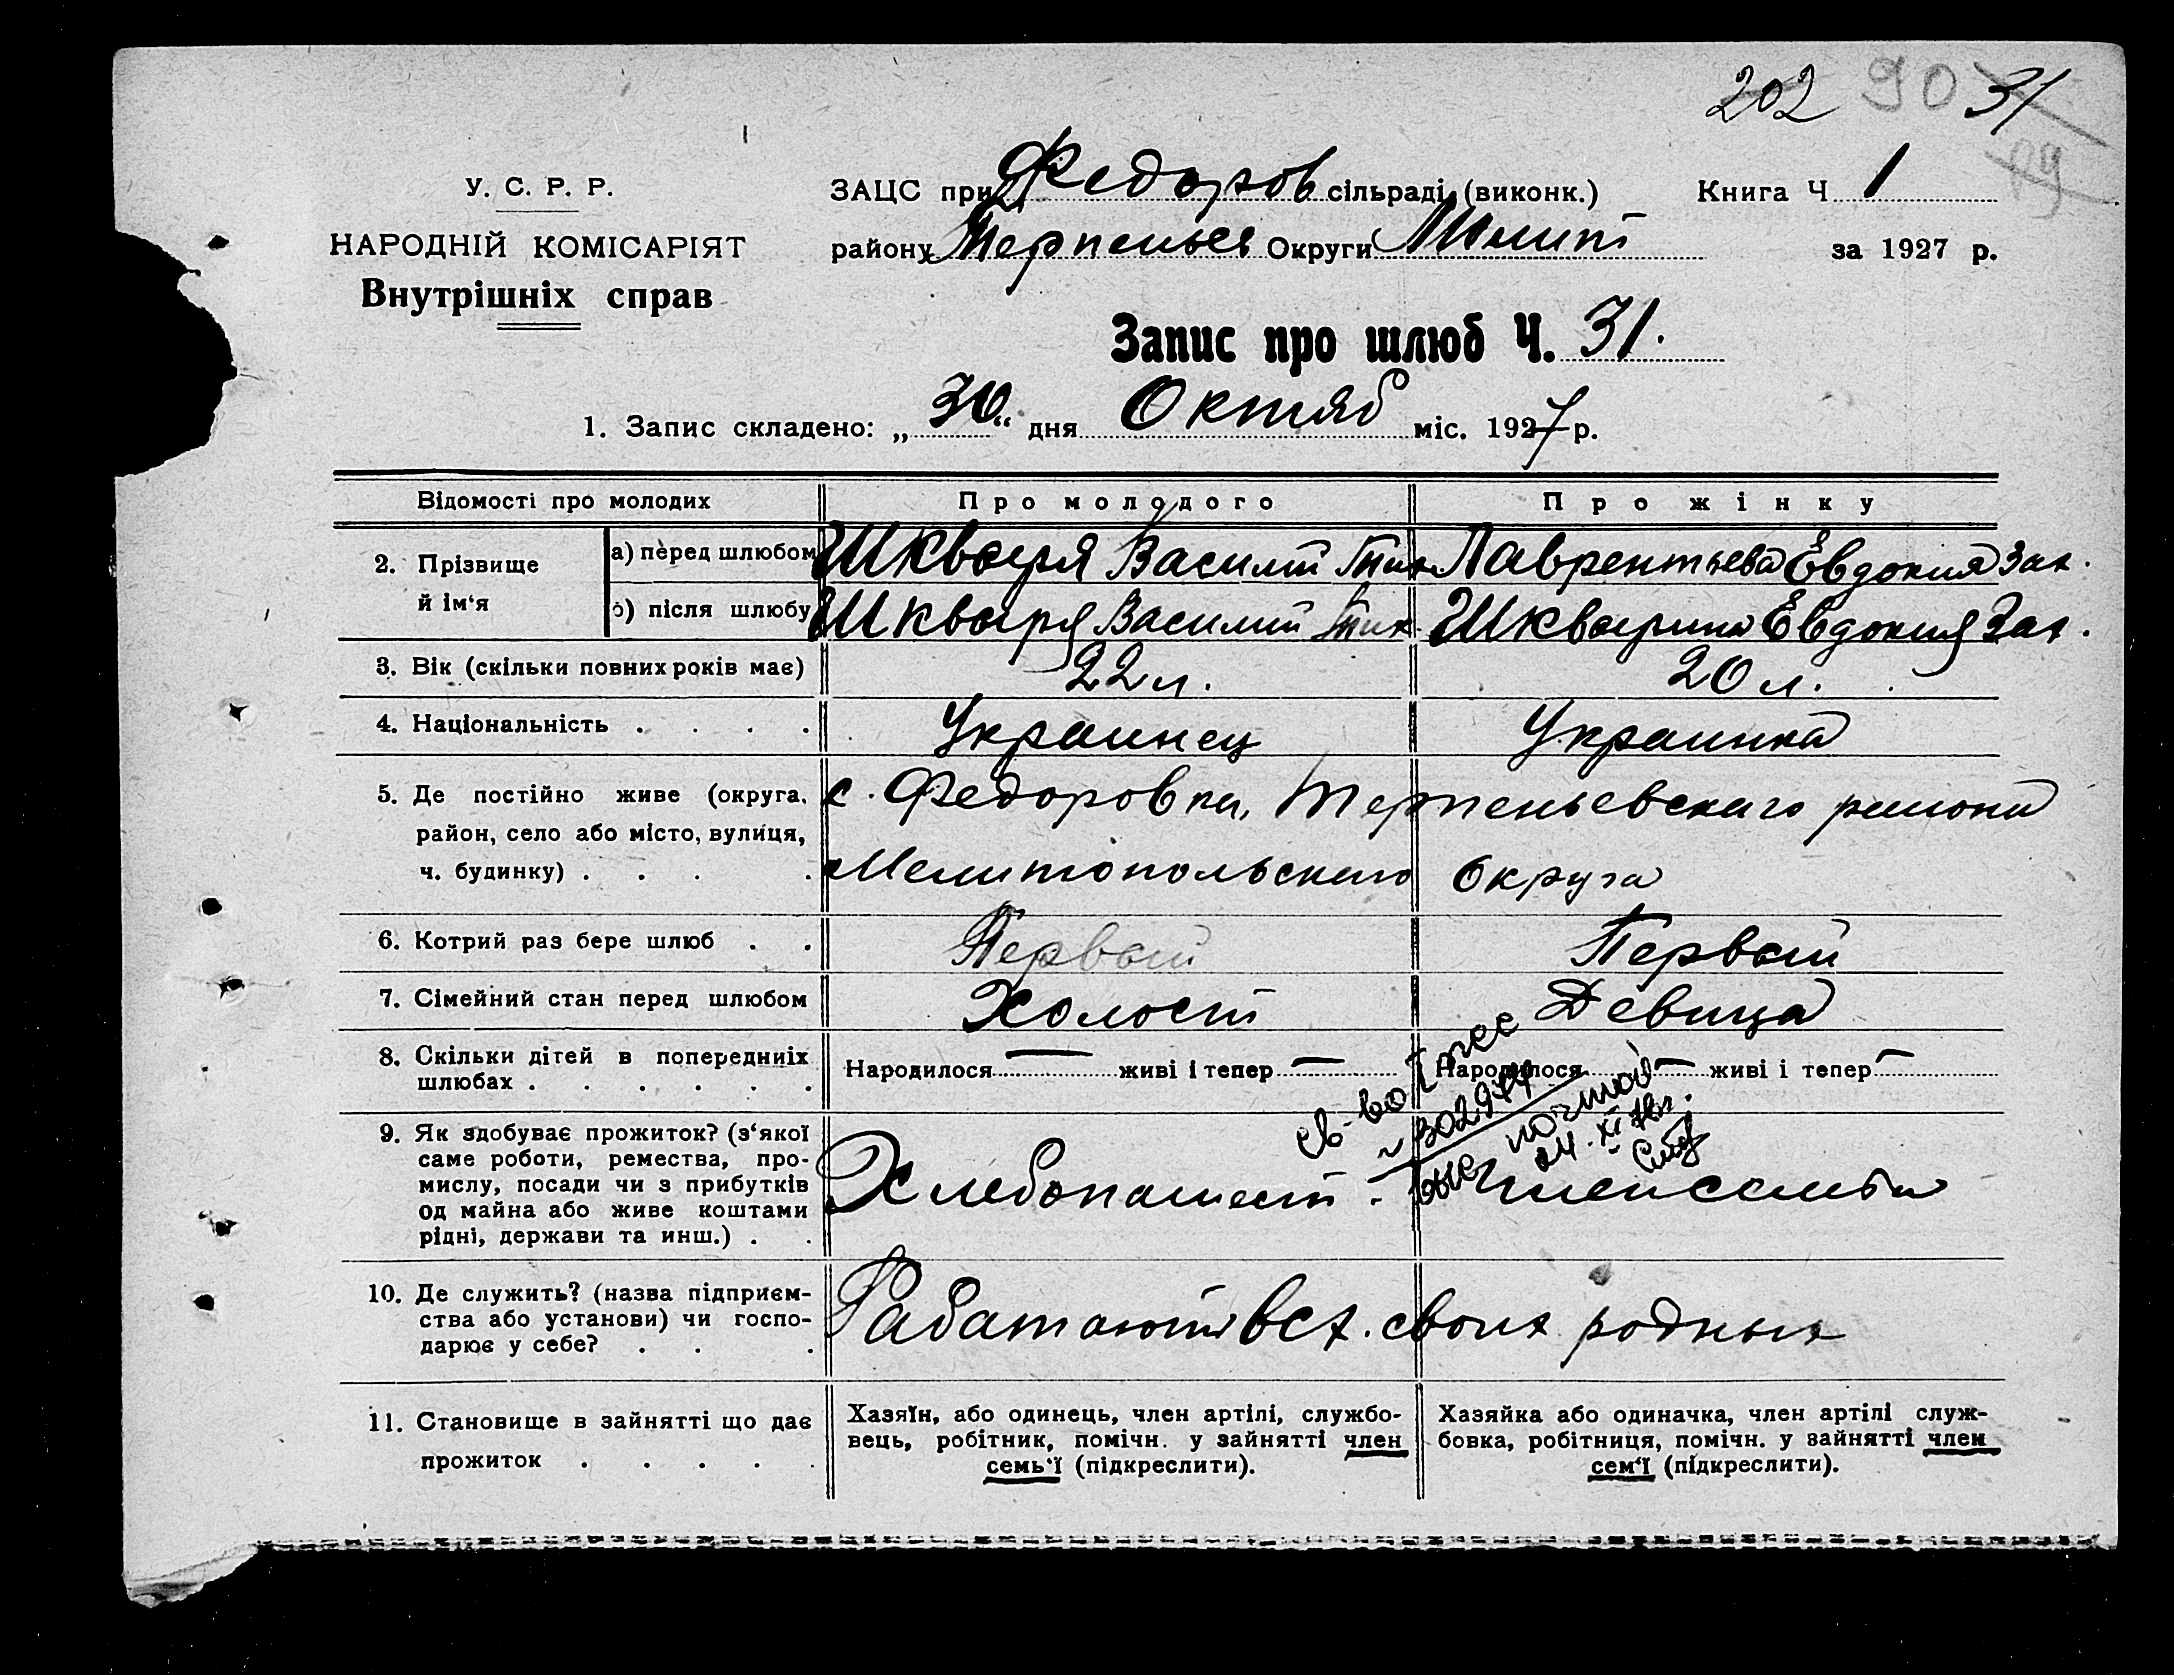 202 90 31
89
У. С. Р. Р.
НАРОДНІЙ КОМІСАРІЯТ
Внутрішніх справ
ЗАЦС при Федоров сільраді (виконк.) Книга Ч 1
району Терпеньев Округи Мелит за 1927 р.
Запис про шлюб Ч. 31.
1. Запис складено: „30“ дня Октяб міс. 1927 р.
Відомості про молодих Про молодого Про жінку
2. Прізвище й ім‘я
а) перед шлюбом Шкваря Василий Тих Лаврентьева Евдокия Зах.
б) після шлюбу Шкваря Василий Тих. Шкварина Евдокия Зах.
3. Вік (скільки повних років має) 22 л. 20 л.
4. Національність . . . . Украинец Украинка
5. Де постійно живе (округа, с. Федоровка, Терпеньевскаго района
район, село або місто, вулиця, Мелитопольского округа
ч. будинку) . . . .
6. Котрий раз бере шлюб . . Первый Первый
7. Сімейний стан перед шлюбом Холост Девица
8. Скільки дітей в попередниіх Народилося — живі і тепер — Народилося — живі і тепер —
шлюбах . . . . . .
св-во I
№ 302944
выс почтой
24. XI
9. Як здобуває прожиток? (з‘якої
саме роботи, ремества, про-
мислу, посади чи з прибутків Хлебопашест.
од майна або живе коштами
рідні, держави та инш.) . .
10. Де служить? (назва підприєм-
ства або установи) чи госпо- Работают в сх. своих родных
дарює у себе? . . .
11. Становище в зайнятті що дає
прожиток . . . . .
Хазяїн, або одинець, член артілі, службо-
вець, робітник, помічн. у зайнятті член
семь‘ї (підкреслити).
Хазяйка або одиначка, член артілі служ-
бовка, робітниця, помічн. у зайнятті член
сем‘ї (підкреслити).